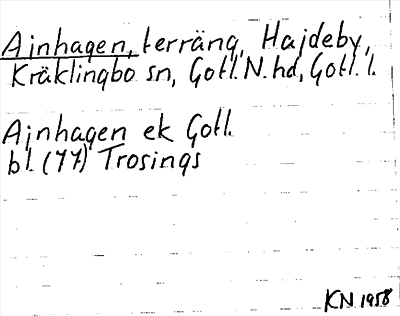 Ajnhagen, terräng, Hajdeby,
Kräklingbo sn, Gotl. N. hd, Gotl. l.
Ajnhagen ek Gotl.
bl. (77) Trosings
KN 1958